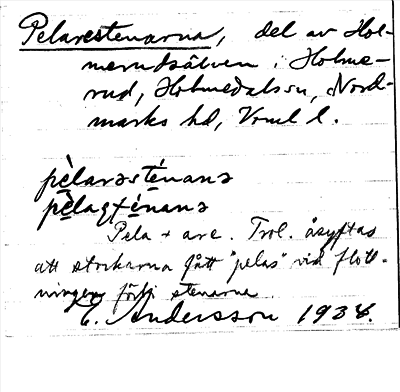 Pelarestenarna, del av Hol-
merudsälven i Holme-
rud, Holmedals sn, Nord-
marks hd, Vrml l.
pèlarəsténanə
pèlaqsténanə
Pela + are. Trol. åsyftas
att stockarna gått "pelas" vid flott-
ningen förbi stenarna.
E. Andersson 1934.